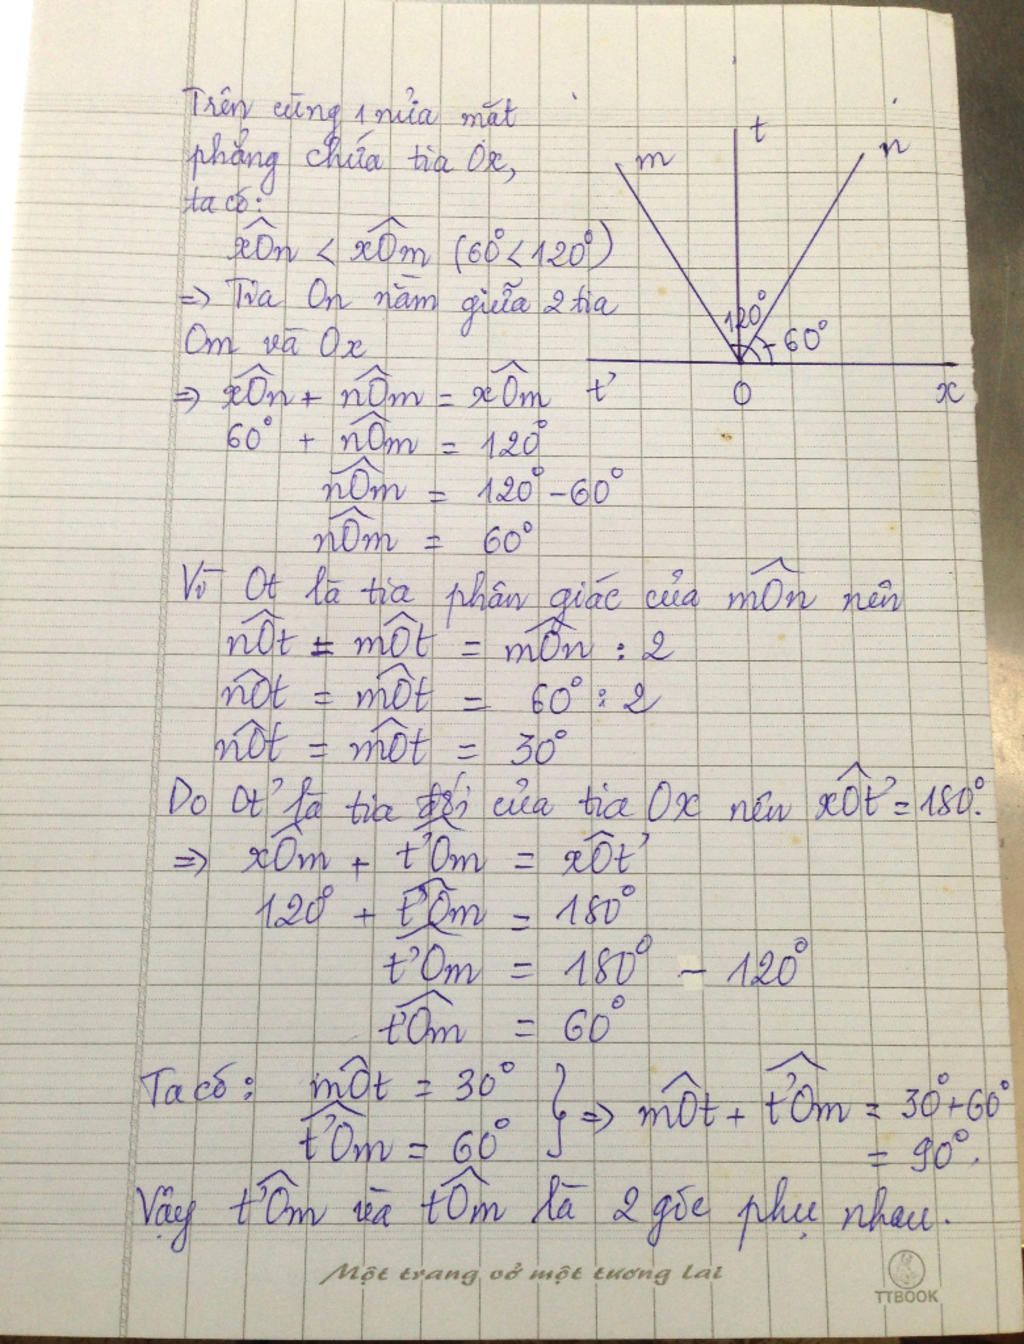 Trên cùng 1 nửa mặt
phẳng chứa tia Ox,
ta có:
xÔn < xÔm (60° < 120°)
=> Tia On nằm giữa 2 tia
Om và Ox
=> xÔn + nÔm = xÔm
60° + nÔm = 120°
nÔm = 120° - 60°
nÔm = 60°
m
t
n
120°
60°
t'
O
x
Vì Ot là tia phân giác của mÔn nên
nÔt = mÔt = mÔn : 2
nÔt = mÔt = 60° : 2
nÔt = mÔt = 30°
Do Ot' là tia đối của tia Ox nên xÔt' = 180°.
=> xÔm + t'Ôm = xÔt'
120° + t'Ôm = 180°
t'Ôm = 180° - 120°
t'Ôm = 60°
Ta có: mÔt = 30°
t'Ôm = 60°
} => mÔt + t'Ôm = 30° + 60°
= 90°.
Vậy t'Ôm và tÔm là 2 góc phụ nhau.
Một trang vở một tương lai
TTBOOK